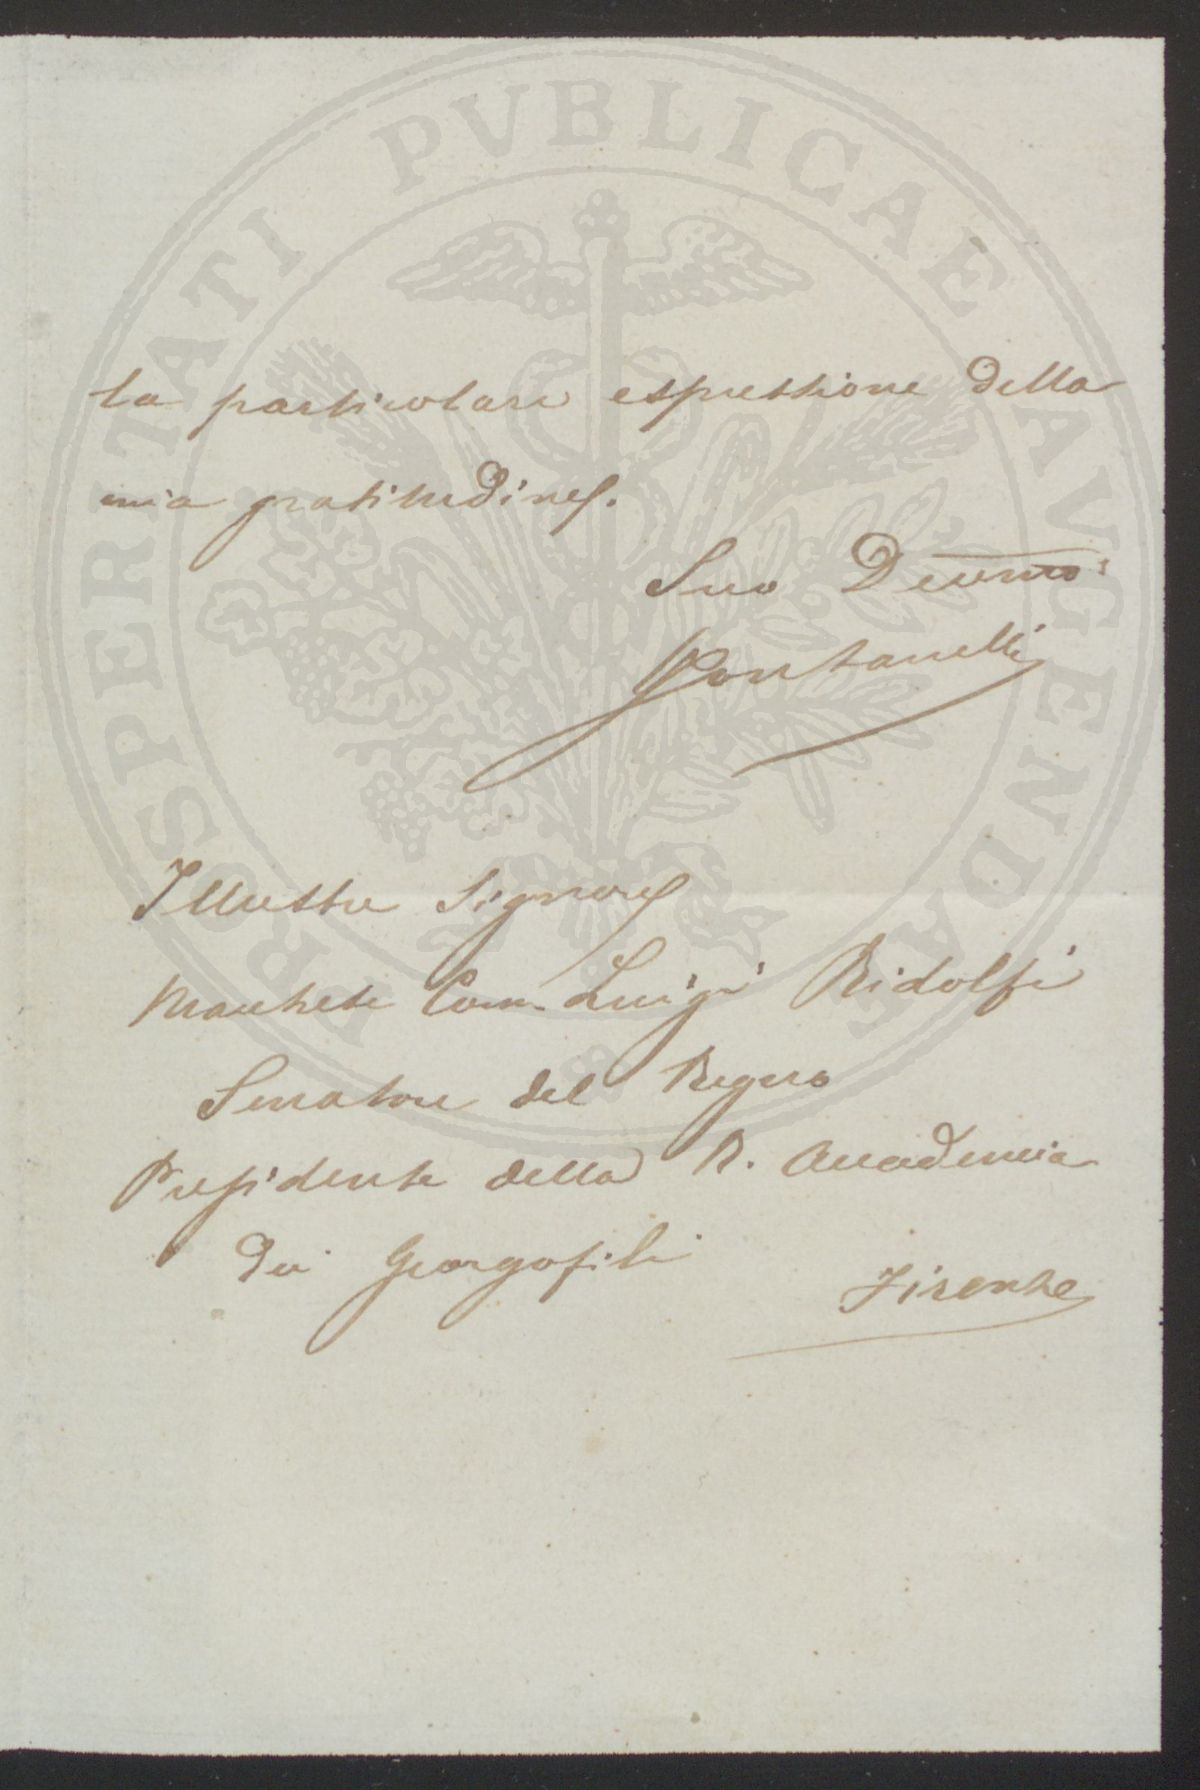 la particolare espressione della
mia gratitudine.
Suo Devmo
Fontanelli
Illustre Signore
Marchese Com. Luigi Ridolfi
Senatore del Regno
Presidente della R. Accademia
dei Georgofili
Firenze
PROSPERITATI PVBLICAE AVGENDAE